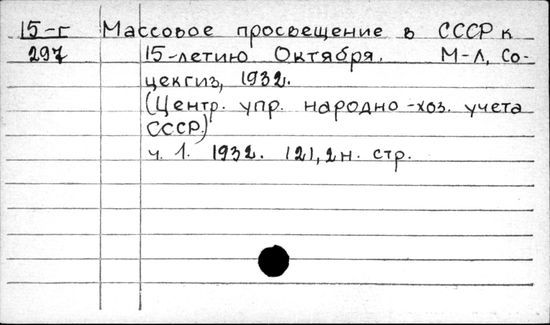 15-г Массовое просвещение в СССР к
297 15-летию Октября. М-Л, Со-
цекгиз, 1932.
(Центр. упр. народно-хоз. учета
СССР)
ч. 1. 1932. 121, 2 н. стр.